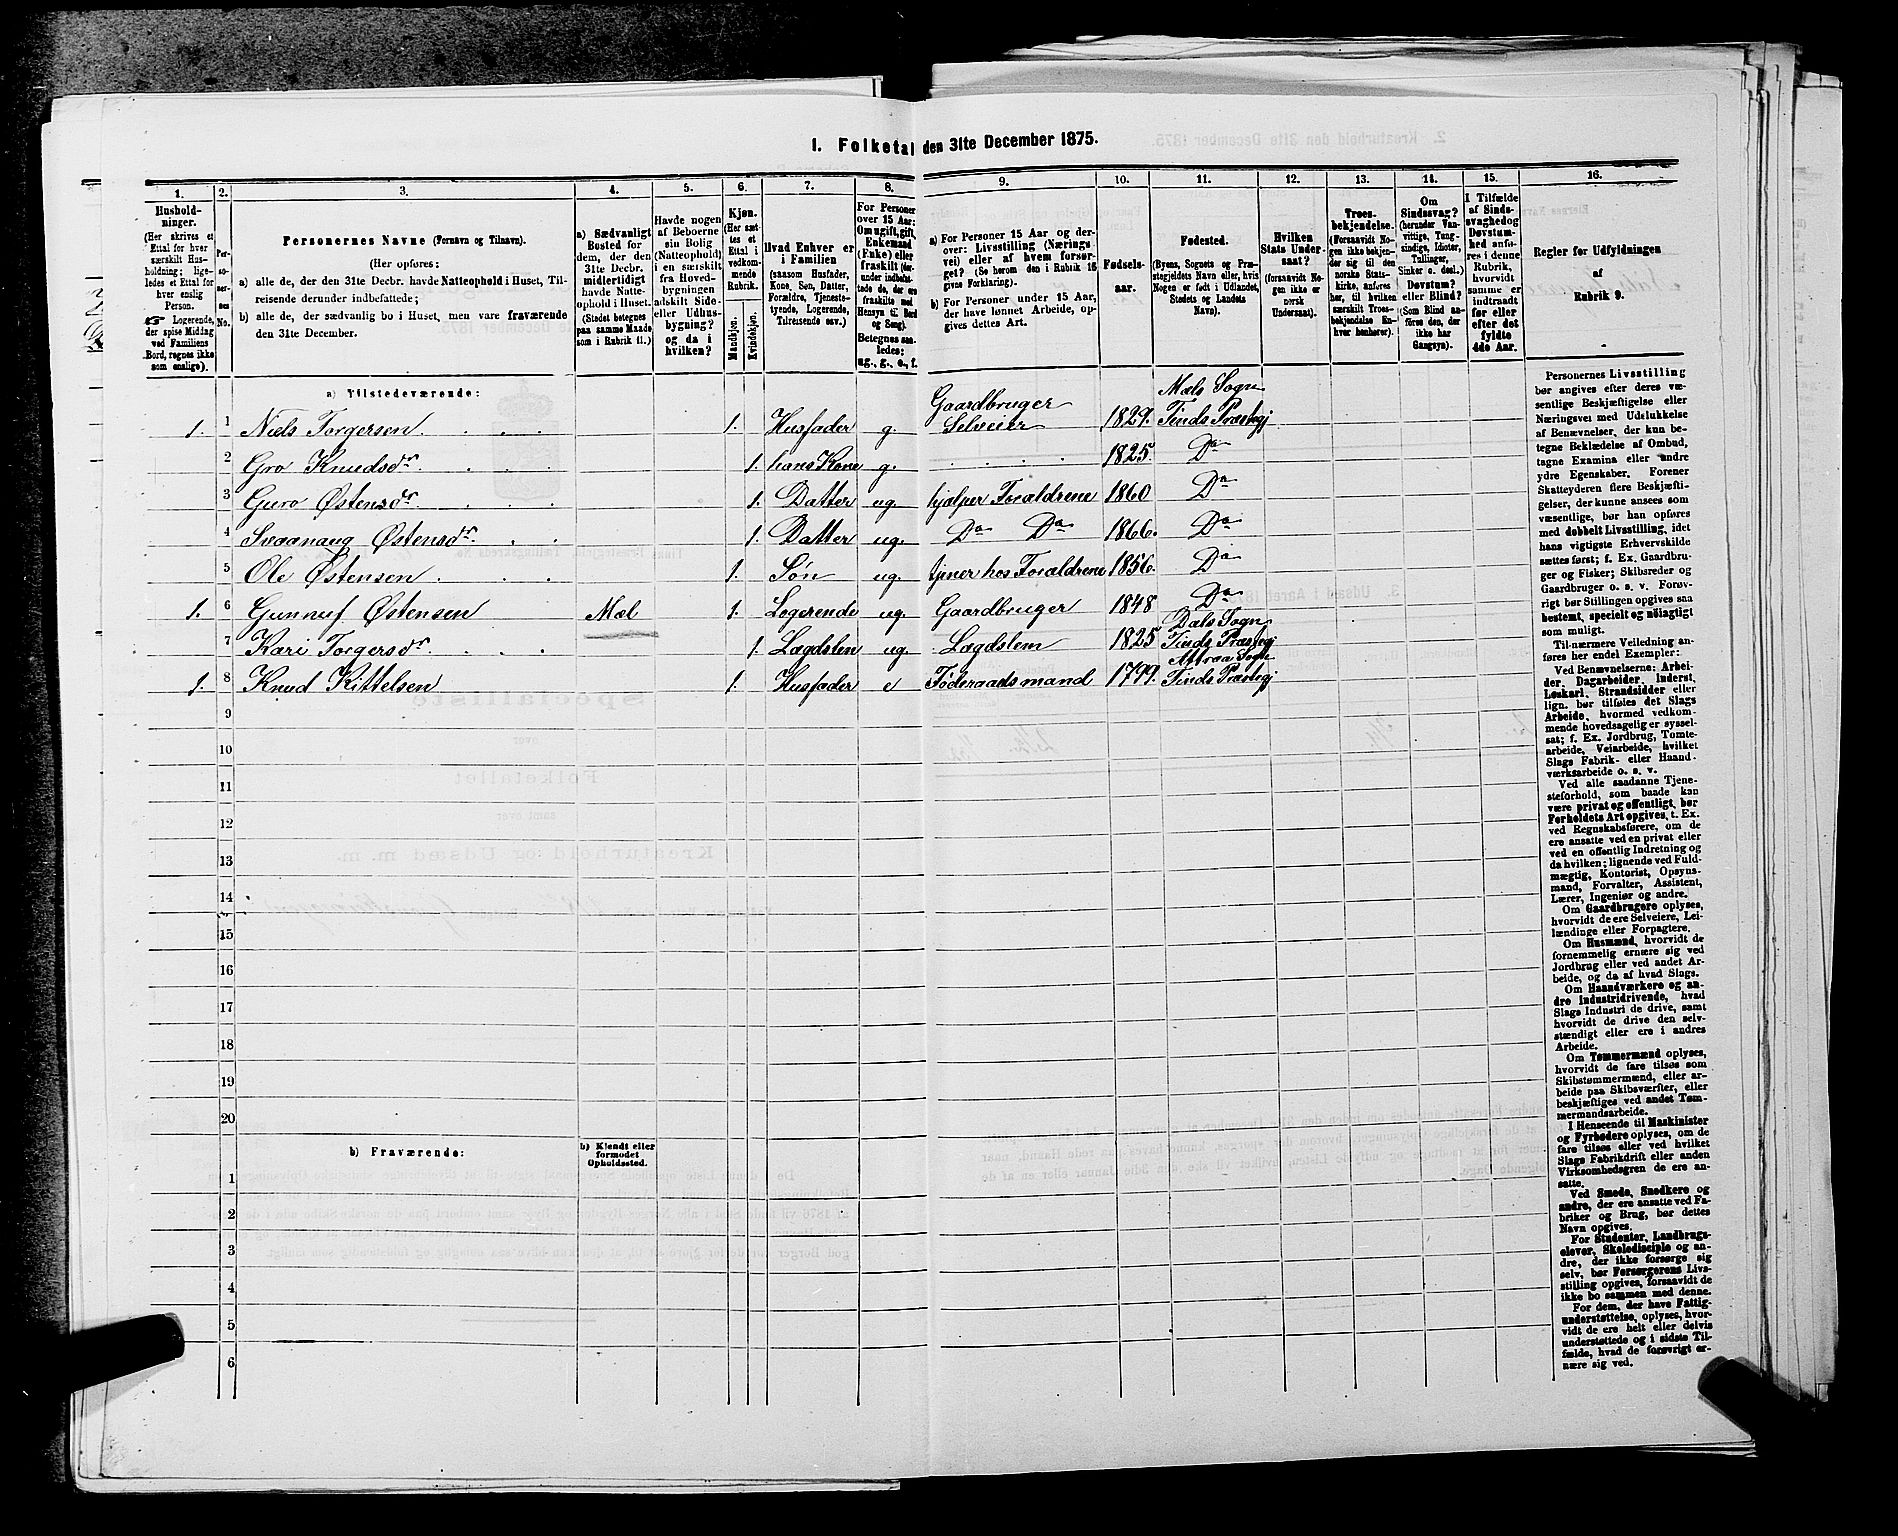 I. Folketal den 31te December 1875.
1. 2. 3. 4. 5. 6. 7. 8. 9. 10. 11. 12. 13. 14. 15. 16.
Husholdninger.
(Her skrives et Ettal for hver særskilt Husholdning; ligeledes et Ettal for hver enslig Person.
Logerende, der spise Middag ved Familiens Bord, regnes ikke som enslige).
Personernes No.
Personernes Navne (Fornavn og Tilnavn).
(Her opføres:
a) alle de, der den 31te Decbr. havde Natteophold i Huset, Tilreisende derunder indbefattede;
b) alle de, der sædvanlig bo i Huset, men vare fraværende den 31te December.
a) Sædvanligt Bosted for dem, der den 31te Decbr. midlertidigt havde Natteophold i Huset.
(Stedet betegnes paa samme Maade som i Rubrik 11.)
Havde nogen af Beboerne sin Bolig (Natteophold) i en særskilt fra Hovedbygningen adskilt Side- eller Udhusbygning? og da i hvilken?
Kjøn.
(Her sættes et Ettal i vedkommende Rubrik.
Mandkjøn.
Kvindekjøn.
Hvad Enhver er i Familien
(saasom Husfader, Kone, Søn, Datter, Forældre, Tjenestetyende, Logerende, Tilreisende osv.)
For Personer over 15 Aar: Om ugift, gift, Enkemand (Enke) eller fraskilt
Betegnes saaledes: ug., g., e., f.
a) For Personer 15 Aar og derover: Livsstilling (Næringsvei) eller af hvem forsørget? (Se herom den i Rubrik 16 givne Forklaring).
b) For Personer under 15 Aar, der have lønnet Arbeide, opgives dettes Art.
Fødselsaar.
Fødested.
(Byens, Sognets og Præstegjeldets Navn eller, hvis Nogen er født i Udlandet, Stedets og Landets Navn).
Hvilken Stats Undersaat?
(forsaavidt Nogen ikke er norsk Undersaat).
Troesbekjendelse.
(Forsaavidt Nogen ikke bekjender sig til den norske Statskirke, anføres her, til hvilken særskilt Troesbekjendelse Enhver henhører).
Om Sindssvag? (herunder Vanvittige, Tungsindige, Idioter, Tullinger, Sinker o. desl.) Døvstum? eller Blind? (Som Blind anføres den, der ikke har Gangsyn).
I Tilfælde af Sindssvaghed og Døvstumhed anføres i denne Rubrik, hvorvidt samme er indtraadt før eller efter det fyldte 4de Aar.
Regler for Udfyldningen
af
Rubrik 9.
a) Tilstedeværende:
1. 1 Niels Torgersen 1. Husfader g. Gaardbruger Selveier 1829. Mæls Sogn Tinds Præstegj
2 Gro Knudsdr 1. hans Kone g. 1825. Do
3 Guro Østensdr 1. Datter ug. hjælper Forældrene 1860 Do
4 Svaanaug Østensdr. 1. Datter ug. Do Do 1866. Do
5 Ole Østensen 1. Søn ug. tjener hos Forældrene 1856. Do
1. 6 Gunnuf Østensen Mæl 1. Logerende ug. Gaardbruger 1848 Do
7 Kari Torgersdr 1. Lægdslem ug. Lægdslem 1825 Dals Sogn Tinds Præstegj
1. 8 Knud Kittelsen 1. Husfader e Føderaadsmand 1799. Attraa Sogn Tinds Præstegj
9
10
11
12
13
14
15
16
17
18
19
20
b) Fraværende:
b) Kjendt eller formodet Opholdssted.
1
2
3
4
5
6
Personernes Livsstilling bør angives efter deres væsentlige Beskjæftigelse eller Næringsvei med Udelukkelse af Benævnelser, der kun betegne Beklædelse af Ombud, tagne Examina eller andre ydre Egenskaber. Forener Skatteyderen flere Beskjæftigelser, der kunne ansees som væsentlige, bør han opføres med dobbelt Livsstilling, idet hans vigtigste Erhvervskilde sættes først; f. Ex. Gaardbruger og Fisker; Skibsreder og Gaardbruger o. s. v. Forøvrigt bør Stillingen opgives saa bestemt, specielt og nöiagtigt som muligt.
Til nærmere Veiledning anføres her endel Exempler:
Ved Benævnelserne: Arbeider, Dagarbeider, Inderst, Løskarl, Strandsidder eller lign. bør tilføies det Slags Arbeide, hvormed vedkommende hovedsagelig er sysselsat; f. Ex. Jordbrug, Tomtearbeide, Veiarbeide, hvilket Slags Fabrik- eller Haandværksarbeide o. s. v.
Ved alle saadanne Tjenesteforhold, som baade kan være privat og offentligt, bør Forholdets Art opgives, t. Ex. ved Regnskabsførere, om de ere ansatte ved en privat eller ved en offentlig Indretning og da hvilken; lignende ved Fuldmægtig, Kontorist, Opsynsmand, Forvalter, Assistent, Lærer, Ingeniør og andre.
Om Gaardbrugere oplyses, hvorvidt de ere Selveiere, Leilændinge eller Forpagtere.
Om Husmænd, hvorvidt de fornemmelig ernære sig ved Jordbrug eller ved andet Arbeide, og da af hvad Slags.
Om Haandværkere og andre Industridrivende, hvad Slags Industri de drive, samt hvorvidt de drive den selvstændigt eller ere i andres Arbeide.
Om Tømmermænd oplyses, hvorvidt de fare tilsøs som Skibstømmermænd, eller arbeide paa Skibsværfter, eller beskjæftiges ved andet Tømmermandsarbeide.
I Henseende til Maskinister og Fyrbødere oplyses, om de fare tilsøs eller ved hvilket Slags Fabrikdrift eller anden Virksomhedsgren de ere ansatte.
Ved Smede, Snedkere og andre, der ere ansatte ved Fabriker og Brug, bør dettes Navn opgives.
For Studenter, Landbrugselever, Skoledisciple og andre, der ikke forsørge sig selv, bør Forsørgerens Livsstilling opgives, forsaavidt de ikke bo sammen med denne.
For dem, der have Fattigunderstøttelse, oplyses, hvorvidt de ere helt eller delvis understøttede og i sidste Tilfælde, hvad de forøvrigt ernære sig ved.